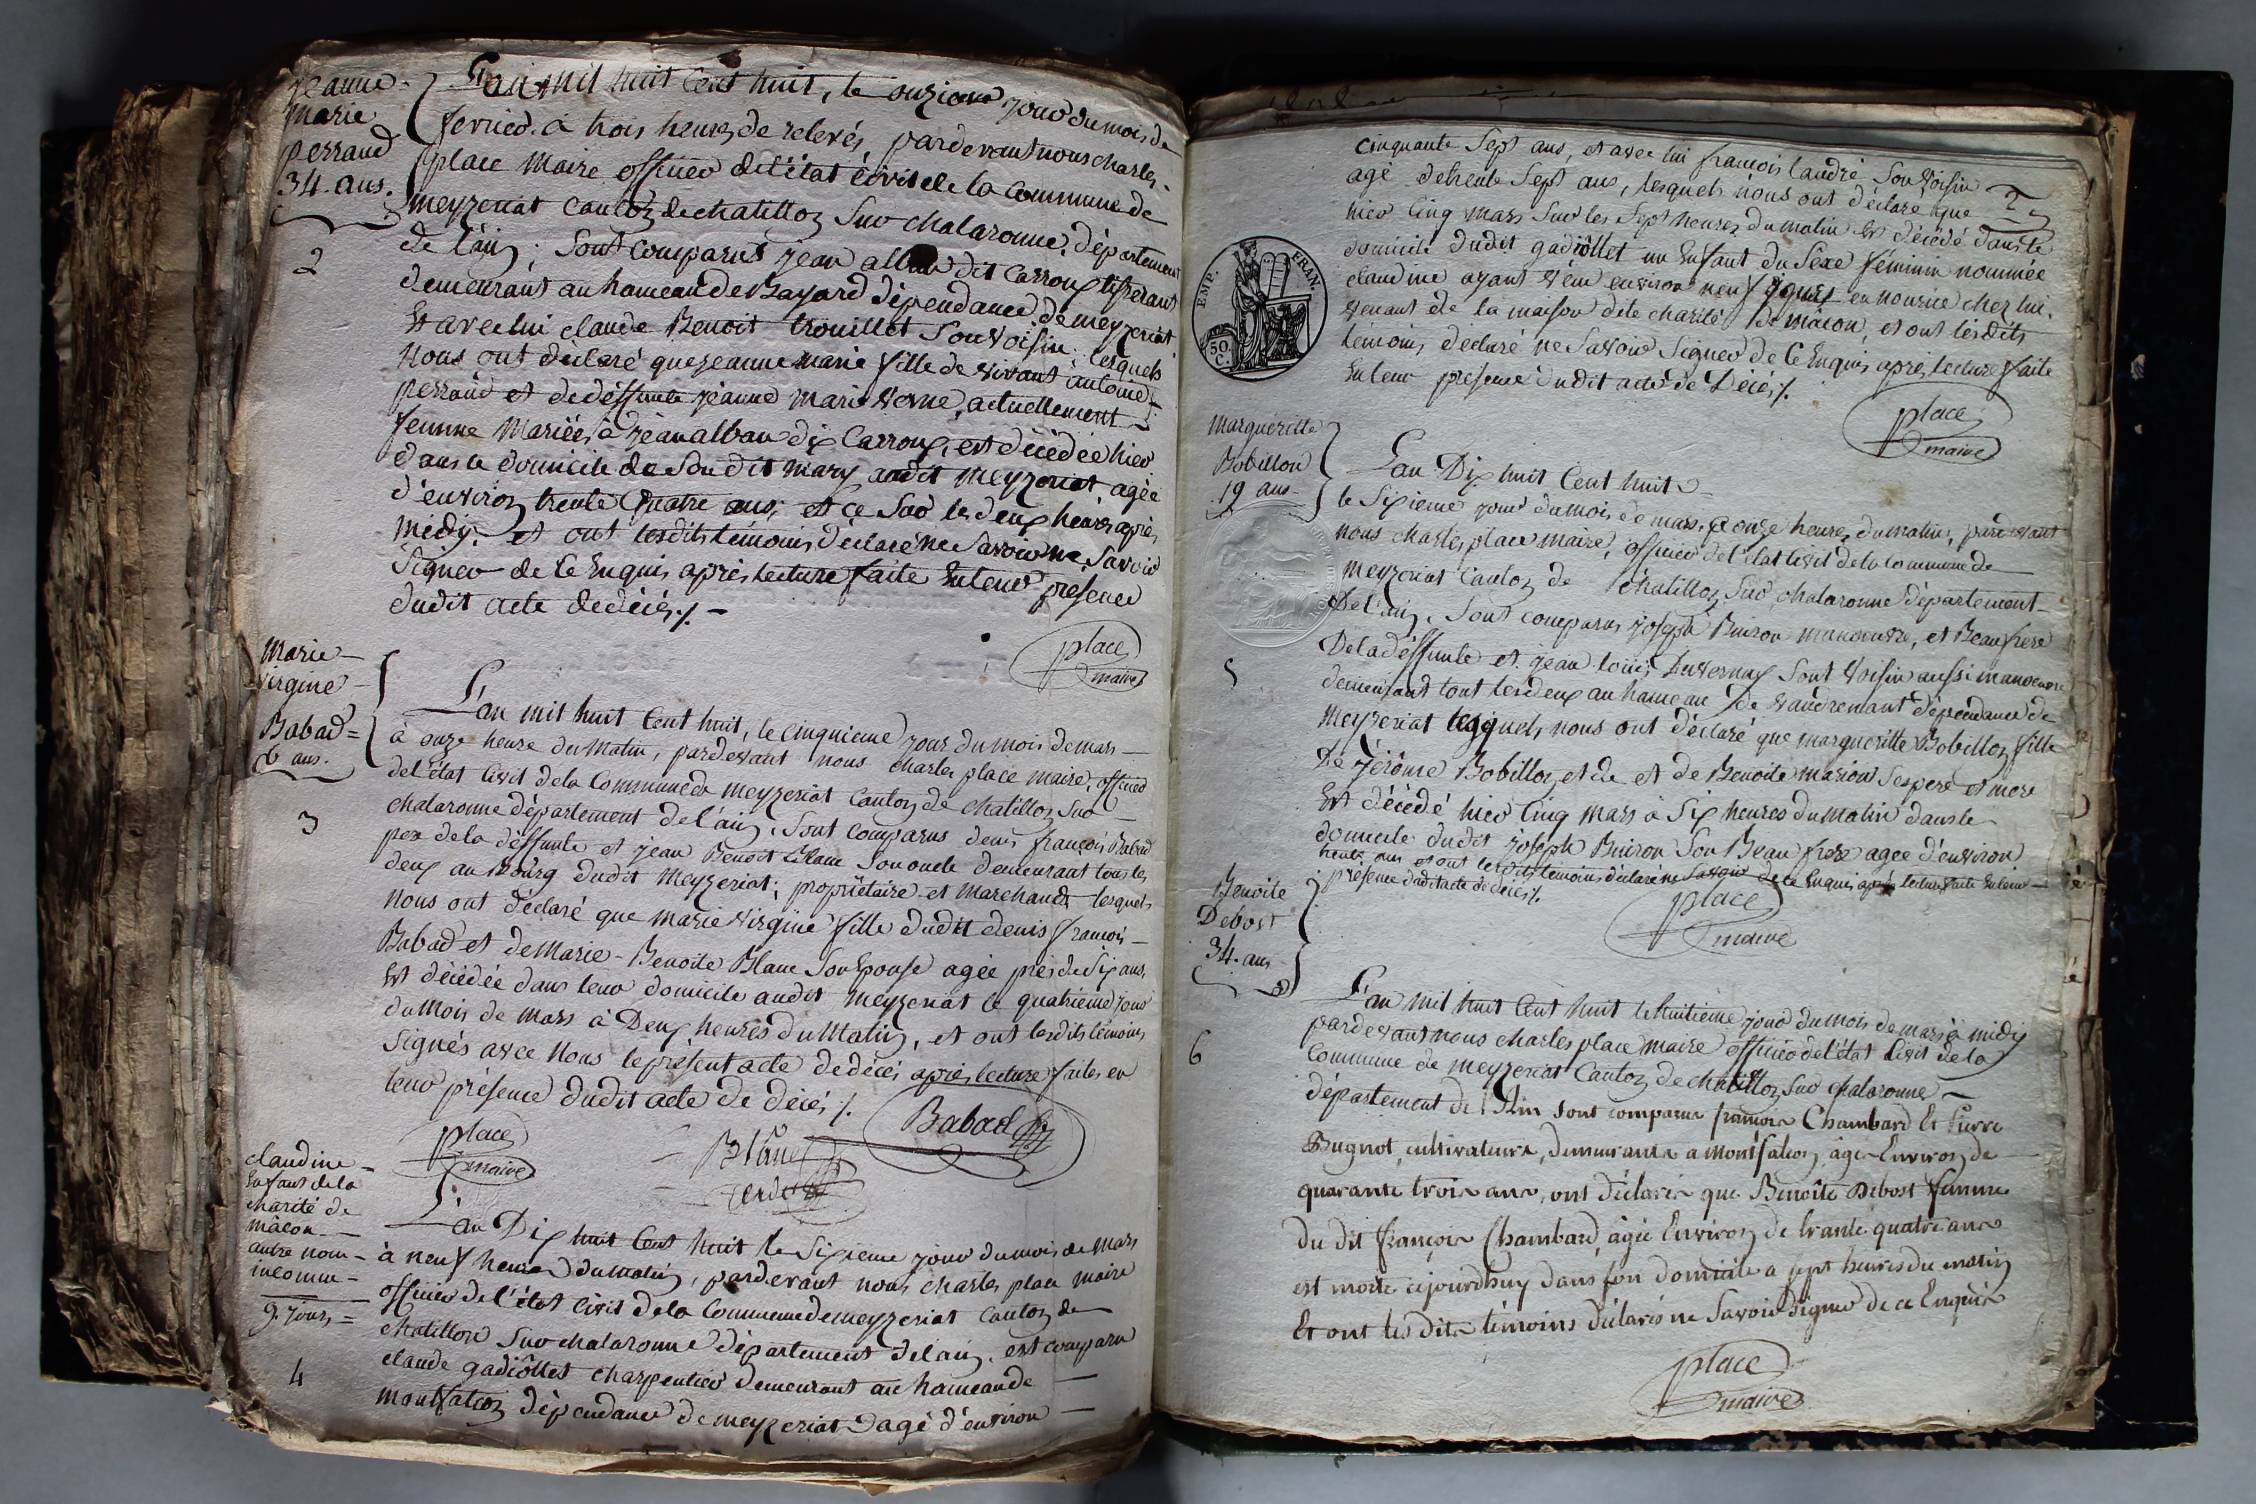 jeanne
marie
perraud
34. ans.
2
L'an mil huit Cent huit, le onzieme jour du mois de
fevrier. à trois heures de relevés, pardevant nous charles
place Maire officier de l'état Civil de la Commune de
meyzeriat Canton de chatillon Sur chalaronne, département
de l'ain; Sont comparus jean alban dit Carroux tisserant
demeurant au hameau de Bayard dépendance de meyzeriat
Et avec lui claude Benoit trouillet Son Voisin; lesquels
Nous ont déclaré que jeanne marie fille de vivant antoine
perraud et de déffunte jeanne marie verne, actuellement
femme Mariée, à jean alban dit Carroux, est décédée hier
dans le domicile de Son dit mary audit meyzeriat, agée
d'environ trente Quatre ans; et ce Sur les deux heures après
midy. et ont lesdits témoins déclaré ne Savoir ne Savoir
Signer de ce Enquis après lecture faite En leur présence
dudit acte de décès ./. —
place
maire
Marie
virginie
Babad =
6 ans.
3
L'an mil huit Cent huit, le Cinquieme jour du mois de mars
à onze heure du Matin, pardevant nous charles place maire, officier
de l'état Civil de la Commune de meyzeriat Canton de chatillon Sur
chalaronne département de l'ain, Sont comparus denis françois Babad
pere de la déffunte et jean Benoit Blanc Son oncle demeurant tous les
deux au Bourg dudit Meyzeriat; propriétaire et Marchands lesquels
Nous ont déclaré que marie virginie fille dudit denis françois
Babad et de Marie - Benoite Blanc Son Epouse agée près de Six ans,
Est décédée dans leur domicile audit meyzeriat le quatrieme jour
du Mois de Mars à Deux heures du Matin, et ont lesdits témoins
Signés avec Nous le présent acte de décès après lecture faites en
leur présence dudit acte de décès ./.
place
maire
Blanc
Babad
claudine
Enfant de la
charité de
mâcon
autre nom
inconnu
9. jours =
4
L'an Dix huit Cent huit le Sixieme jour du mois de Mars
à neuf heures du Matin, pardevant nous charles place maire
officier de l'état Civil de la Commune de meyzeriat Canton de
chatillon Sur chalaronne département de l'ain, est comparu
claude gadiôllet charpentier demeurant au hameau de
montfalcon dépendance de meyzeriat agé d'environ
Cinquante Sept ans, et avec lui françois landré Son Voisin
agé de trente Sept ans, lesquels nous ont déclaré que
hier Cinq mars Sur les Sept heures du Matin Est décédé dans le
domicile dudit gadiôllet un Enfant du Sexe féminin nommée
claudine ayant vécu environ neuf jours en nourice chez lui.
venant de la maison de la charité de mâcon, et ont lesdits
témoins déclaré ne Savoir Signer de Ce Enquis après lecture faite
En leur présence dudit acte de Décès ./.
EMP. FRAN.
50
C.
place
maire
Margueritte
Bobillon
19 ans
5
L'an Dix huit Cent huit
le Sixieme jour du mois de mars, à onze heures du matin, pardevant
nous charles place maire, officier de l'état Civil de la Commune de
meyzeriat Canton de chatillon Sur chalaronne département
De l'ain, Sont comparus joseph Buiron manoeuvre, et Beaufrere
De la déffunte et jean louis Duvernay Sont Voisin aussi manoeuvre
demeurant tout les deux au hameau de vaudrenant dépendance de
meyzeriat lesquels nous ont déclaré que margueritte Bobillon fille
de jérôme Bobillon et de et de Benoite marion Ses pere et mere
Est décédé hier Cinq Mars à Six heures du Matin dans le
domicile dudit joseph Buiron Son Beau frere agée d'environ
trente ans et ont lesdits témoins déclaré ne Savoir de ce Enquis après lecture faite En leur
présence dudit acte de décès ./.
place
maire
Benoite
Debost
34. ans
6
L'an mil huit Cent huit le huitieme jour du mois de mars à midy
pardevant nous charles place maire officier de l'état Civil de la
Commune de meyzeriat Canton de chatillon Sur chalaronne
département de l'Ain Sont comparus françois Chambard Et Pierre
Bugnot, cultivateurs, demeurants a Montfalcon, âgés Environ de
quarante trois ans, ont déclarés que Benoîte Debost femme
du dit françois Chambard, âgée Environ de trante quatre ans
est morte ajourdhuy dans son domicile a sept heures du matin
Et ont les dits témoins déclarés ne Savoir Signer de ce Enquis
place
maire